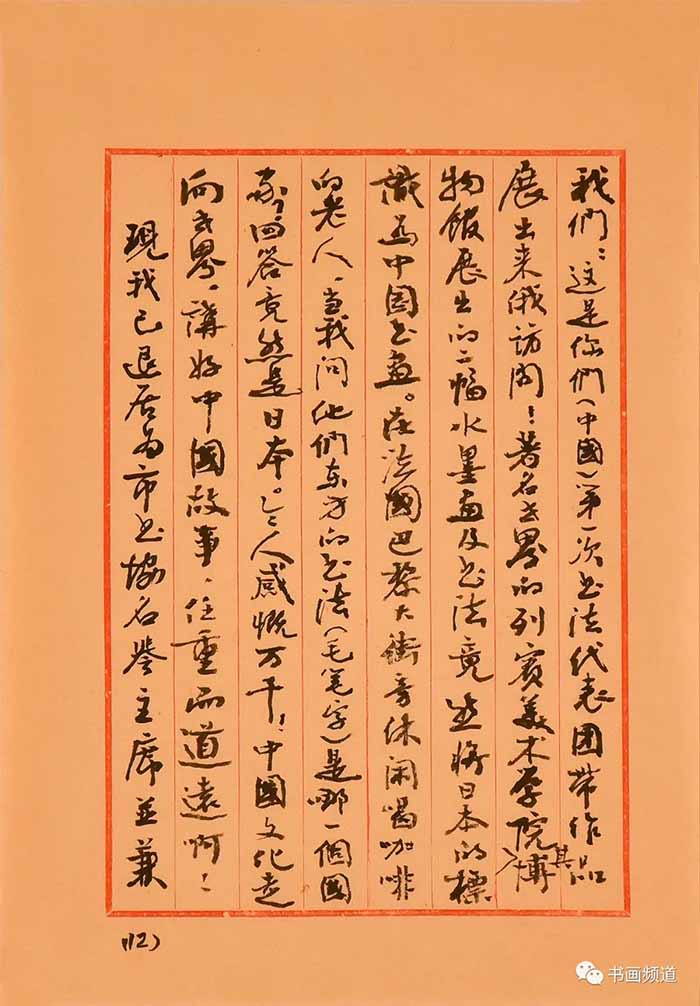 我們：这是你們（中國）第一次书法代表团带作品
展出来俄访问！著名世界的列宾美术学院其博
物馆展出的二幅水墨画及书法竟然将日本的標
識为中国书画。在法國巴黎大街旁休闲喝咖啡
的老人，当我问他們东方的书法（毛笔字）是哪一個國
家，回答竟然是日本。令人感慨万千！中國文化走
向世界，講好中國故事，任重而道遠啊！
現我已退居为市书協名誉主席並兼
(12)
书画频道